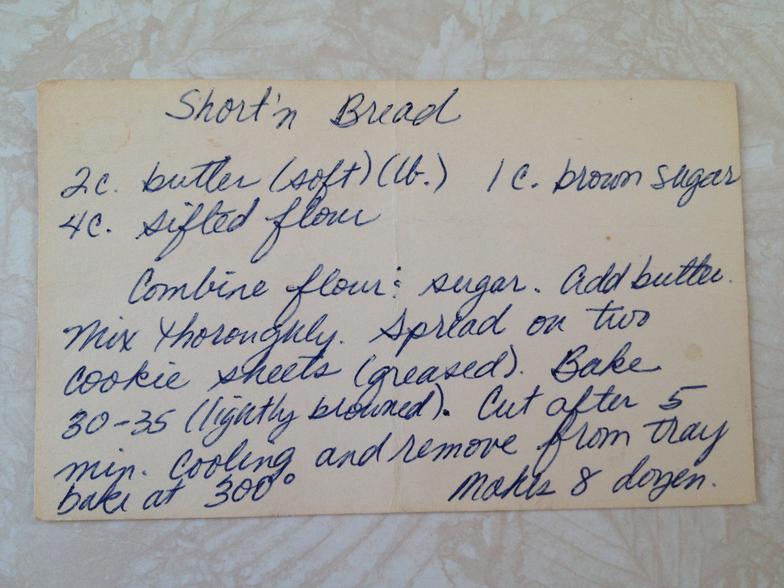 Short'n Bread
2c. butter (soft) (lb.) 1 c. brown sugar
4c. sifted flour
Combine flour & sugar. Add butter.
Mix thoroughly. Spread on two
cookie sheets (greased). Bake
30-35 (lightly browned). Cut after 5
min. cooling and remove from tray
bake at 300° Makes 8 dozen.